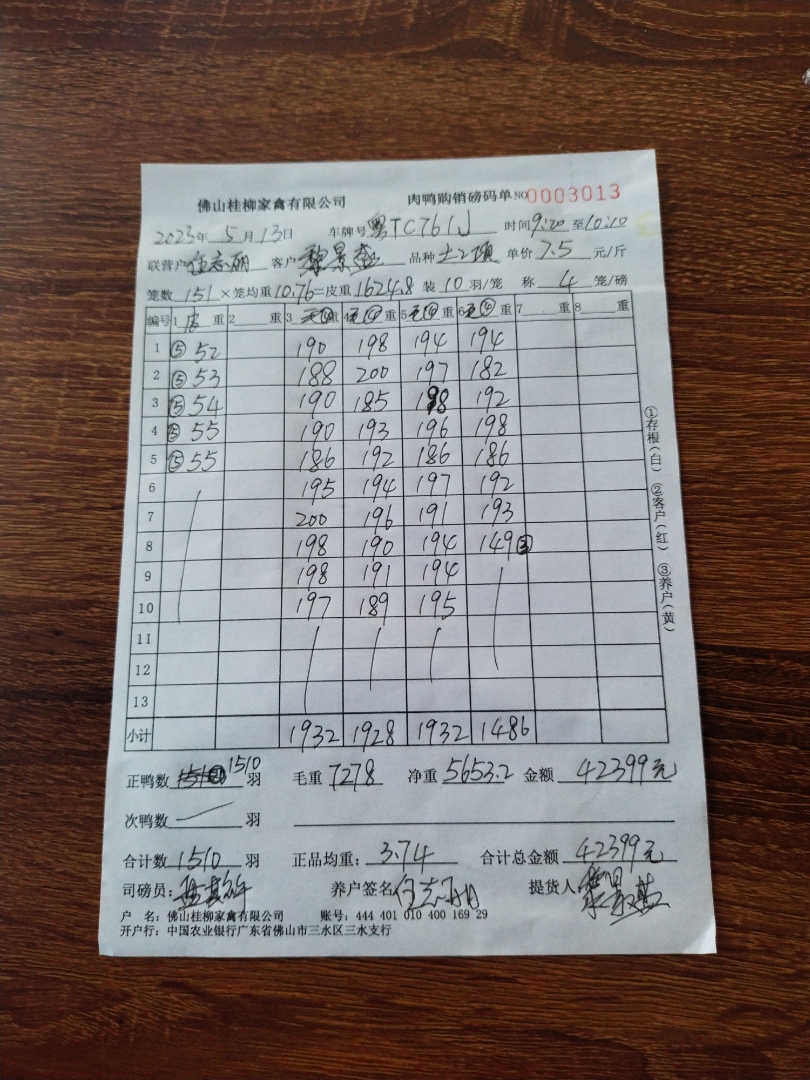 佛山桂柳家禽有限公司 肉鸭购销磅码单 NO 0003013
2023年 5月13日 车牌号 粤TC761J 时间 9:20 至 10:10
联营户 任志丽 客户 黎景燕 品种 土2项 单价 7.5 元/斤
笼数 151 ×笼均重 10.76 =皮重 1624.8 装 10 羽/笼 称 4 笼/磅
编号 1 皮 重 2 重 3 毛④ 重 4 毛④ 重 5 毛④ 重 6 毛④ 重 7 重 8 重
1 ⑤ 52 190 198 194 194
2 ⑤ 53 188 200 197 182
3 ⑤ 54 190 185 198 192
4 ⑤ 55 190 193 196 198
5 ⑤ 55 186 192 186 186
6 195 194 197 192
7 200 196 191 193
8 198 190 194 149③
9 198 191 194
10 197 189 195
11
12
13
小计 1932 1928 1932 1486
正鸭数 1510 羽 毛重 7278 净重 5653.2 金额 42399元
次鸭数 羽
合计数 1510 羽 正品均重: 3.74 合计总金额 42399元
司磅员: 养户签名 任志丽 提货人 黎景燕
户 名: 佛山桂柳家禽有限公司 账号: 444 401 010 400 169 29
开户行: 中国农业银行广东省佛山市三水区三水支行
①存根(白) ②客户(红) ③养户(黄)